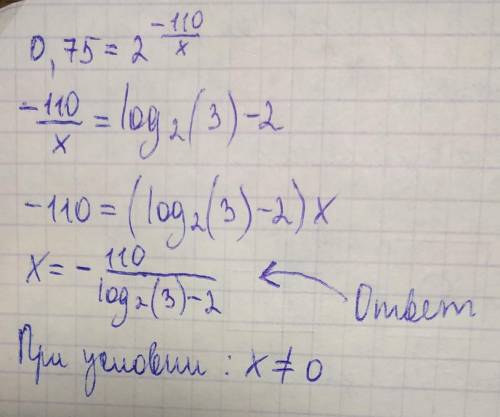 0,75 = 2^(-110/x)
-110/x = log₂(3) - 2
-110 = (log₂(3) - 2) x
x = - 110/(log₂(3) - 2) ← Ответ
При условии : x ≠ 0